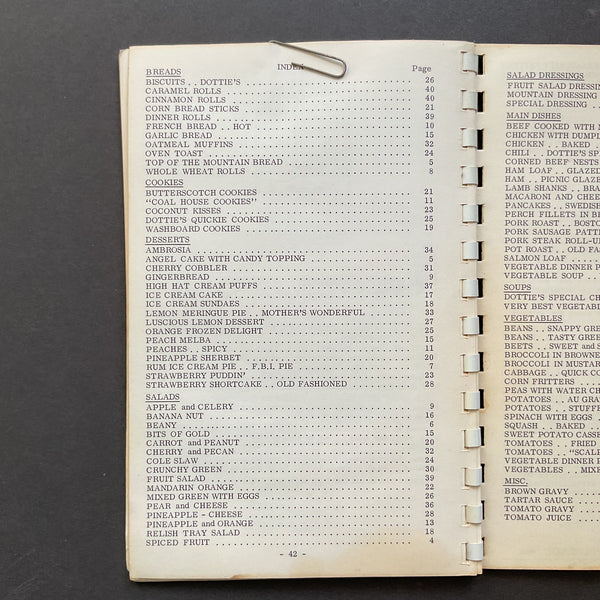 INDEX Page
BREADS
BISCUITS . . DOTTIE'S 26
CARAMEL ROLLS 40
CINNAMON ROLLS 40
CORN BREAD STICKS 21
DINNER ROLLS 39
FRENCH BREAD . . HOT 10
GARLIC BREAD 15
OATMEAL MUFFINS 32
OVEN TOAST 24
TOP OF THE MOUNTAIN BREAD 5
WHOLE WHEAT ROLLS 8
COOKIES
BUTTERSCOTCH COOKIES 21
"COAL HOUSE COOKIES" 11
COCONUT KISSES 23
DOTTIE'S QUICKIE COOKIES 25
WASHBOARD COOKIES 19
DESSERTS
AMBROSIA 34
ANGEL CAKE WITH CANDY TOPPING 5
CHERRY COBBLER 31
GINGERBREAD 9
HIGH HAT CREAM PUFFS 37
ICE CREAM CAKE 17
ICE CREAM SUNDAES 18
LEMON MERINGUE PIE . . MOTHER'S WONDERFUL 33
LUSCIOUS LEMON DESSERT 27
ORANGE FROZEN DELIGHT 25
PEACH MELBA 15
PEACHES . . SPICY 11
PINEAPPLE SHERBET 20
RUM ICE CREAM PIE . . F.B.I. PIE 7
STRAWBERRY PUDDIN' 23
STRAWBERRY SHORTCAKE . . OLD FASHIONED 28
SALADS
APPLE and CELERY 9
BANANA NUT 16
BEANY 6
BITS OF GOLD 15
CARROT and PEANUT 20
CHERRY and PECAN 32
COLE SLAW 24
CRUNCHY GREEN 30
FRUIT SALAD 39
MANDARIN ORANGE 22
MIXED GREEN WITH EGGS 26
PEAR and CHEESE 36
PINEAPPLE - CHEESE 28
PINEAPPLE and ORANGE 13
RELISH TRAY SALAD 18
SPICED FRUIT 4
- 42 -
SALAD DRESSINGS
FRUIT SALAD DRESSING
MOUNTAIN DRESSING
SPECIAL DRESSING
MAIN DISHES
BEEF COOKED WITH
CHICKEN WITH DUMPL
CHICKEN . . BAKED
CHILI . . DOTTIE'S SP
CORNED BEEF NESTS
HAM LOAF . . GLAZED
HAM . . PICNIC GLAZE
LAMB SHANKS . . BRA
MACARONI AND CHEE
PANCAKES . . SWEDISH
PERCH FILLETS IN BE
PORK ROAST . . BOSTO
PORK SAUSAGE PATT
PORK STEAK ROLL-U
POT ROAST . . OLD FA
SALMON LOAF
VEGETABLE DINNER P
VEGETABLE SOUP
SOUPS
DOTTIE'S SPECIAL CH
VERY BEST VEGETABL
VEGETABLES
BEANS . . SNAPPY GRE
BEANS . . TASTY GREE
BEETS . . SWEET and S
BROCCOLI IN BROWNE
BROCCOLI IN MUSTAR
CABBAGE . . QUICK CO
CORN FRITTERS
PEAS WITH WATER CH
POTATOES . . AU GRA
POTATOES . . STUFFE
SPINACH WITH EGGS
SQUASH . . BAKED
SWEET POTATO CASSE
TOMATOES . . FRIED
TOMATOES . . "SCALL
VEGETABLE DINNER P
VEGETABLES . . MIXE
MISC.
BROWN GRAVY
TARTAR SAUCE
TOMATO GRAVY
TOMATO JUICE